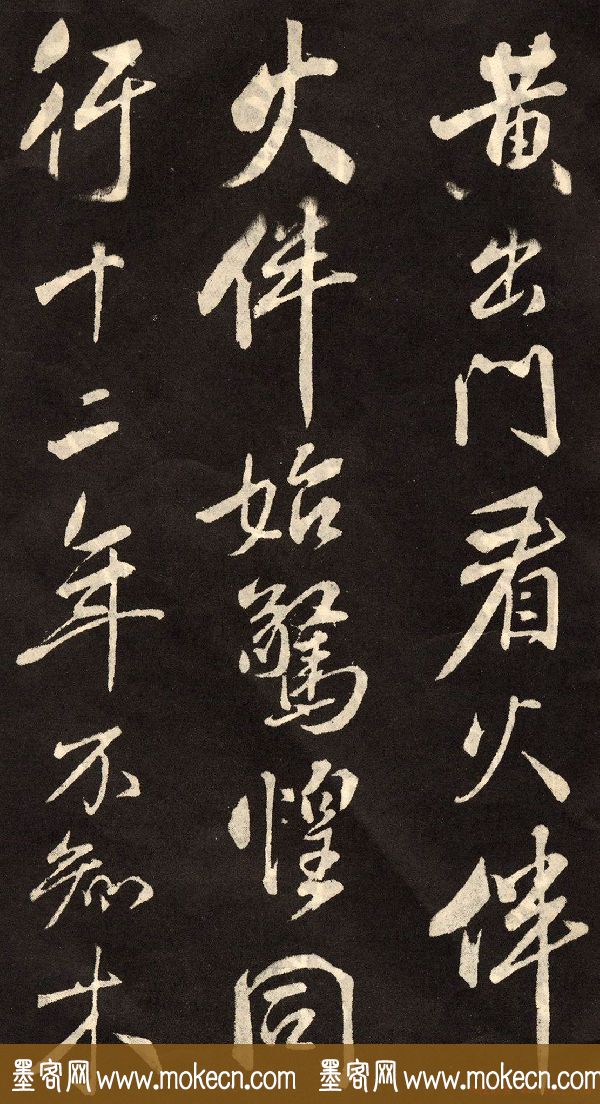 黄出門看火伴
火伴始驚惶同
行十二年不知木
墨客网 www.mokecn.com 墨客网 www.mokecn.com